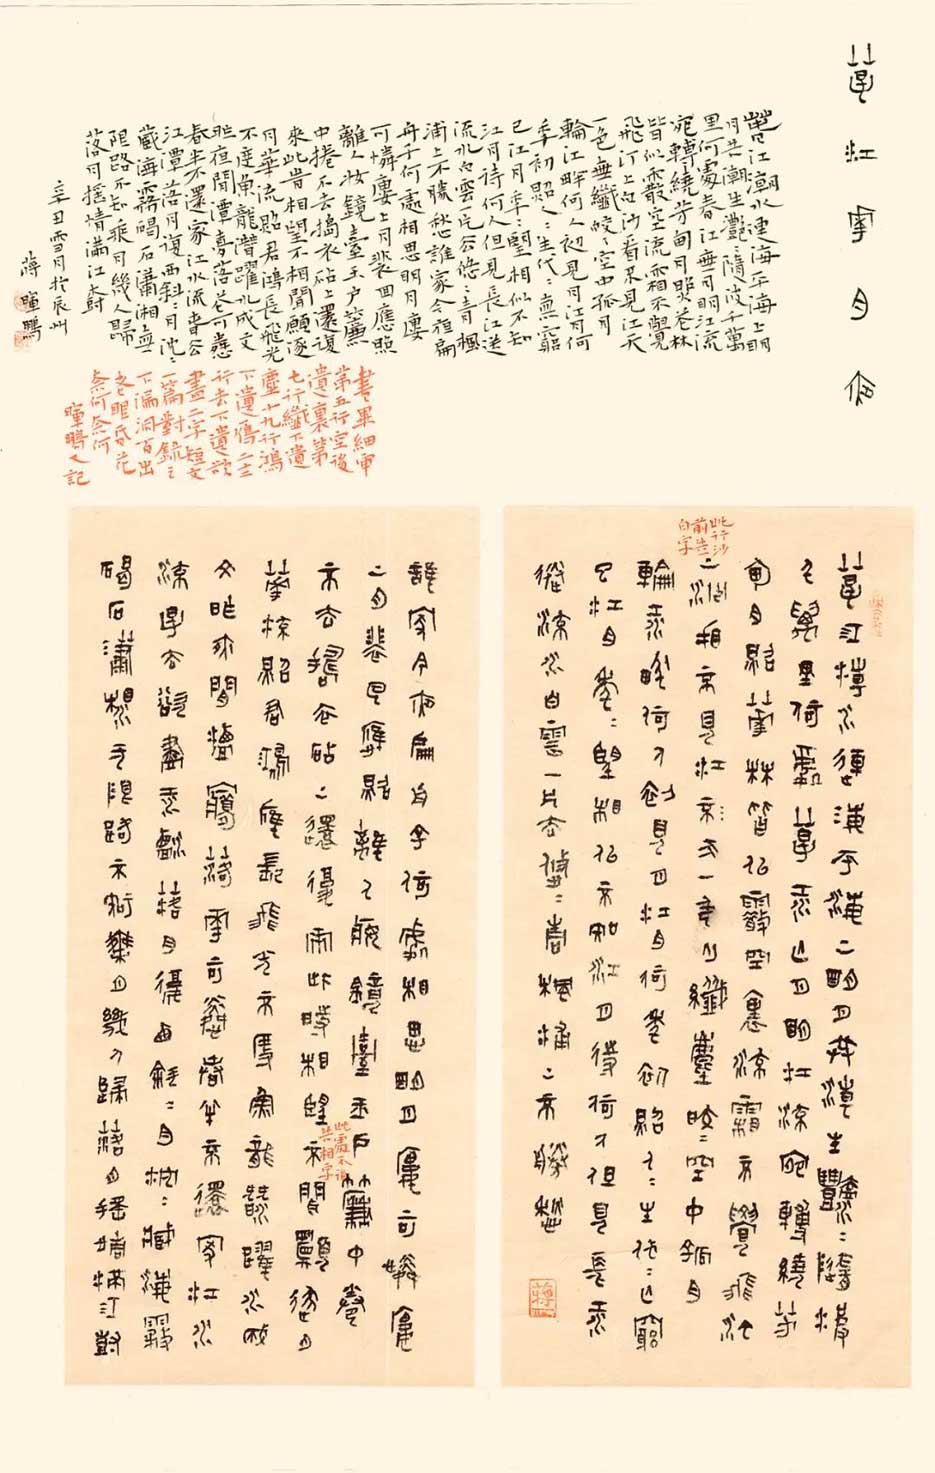 春江花月夜
春江潮水連海平海上明
月共潮生灩〻隨波千萬
里何處春江無月明江流
宛轉繞芳甸月照花林
皆似霰空流霜不覺
飛汀上白沙看不見江天
一色無纖皎〻空中孤月
輪江畔何人初見月江月何
年初照人〻生代〻無窮
已江月年〻望相似不知
江月待何人但見長江送
流水白雲一片去悠〻青楓
浦上不勝愁誰家今夜扁
舟子何處相思明月樓
可憐樓上月裴回應照
離人妝鏡臺玉户簾
中捲不去搗衣砧上還復
來此時相望不相聞願逐
月華流照君鴻長飛光
不度魚龍潛躍水成文
昨夜閒潭夢落花可憐
春半不還家江水流春去
江潭落月復西斜〻月沈〻
藏海霧碣石瀟湘無
限路不知乘月幾人歸
落月搖情滿江樹
辛丑雪月於辰州
蔣暉鵬
書畢細審
第五行空後
遺裏第
七行纖下遺
塵十九行鴻
下遺雁二十二
行去下遺欲
盡二字短文
一篇對錄之
下漏洞百出
老眼昏花
奈何奈何
暉鵬又記
春江潮水連海平海上明月共潮生灩〻隨波
千萬里何處春江無月明江流宛轉繞芳
甸月照花林皆似霰空裏流霜不覺飛汀
此行沙
前遺
白字
上沙看不見江天一色無纖塵皎〻空中孤月
輪江畔何人初見月江月何年初照人〻生代〻無窮
已江月年〻望相似不知江月待何人但見長江
送流水白雲一片去悠〻青楓浦上不勝愁
誰家今夜扁舟子何處相思明月樓可憐樓
上月裴回應照離人妝鏡臺玉戶簾中卷
不去搗衣砧上還復來此時相望不聞願逐月
華流照君鴻雁長飛光不度魚龍潛躍水成
文昨夜閒潭夢落花可憐春半不還家江水
流春去欲盡江潭落月復西斜〻月沈〻藏海霧
碣石瀟湘無限路不知乘月幾人歸落月搖情滿江樹